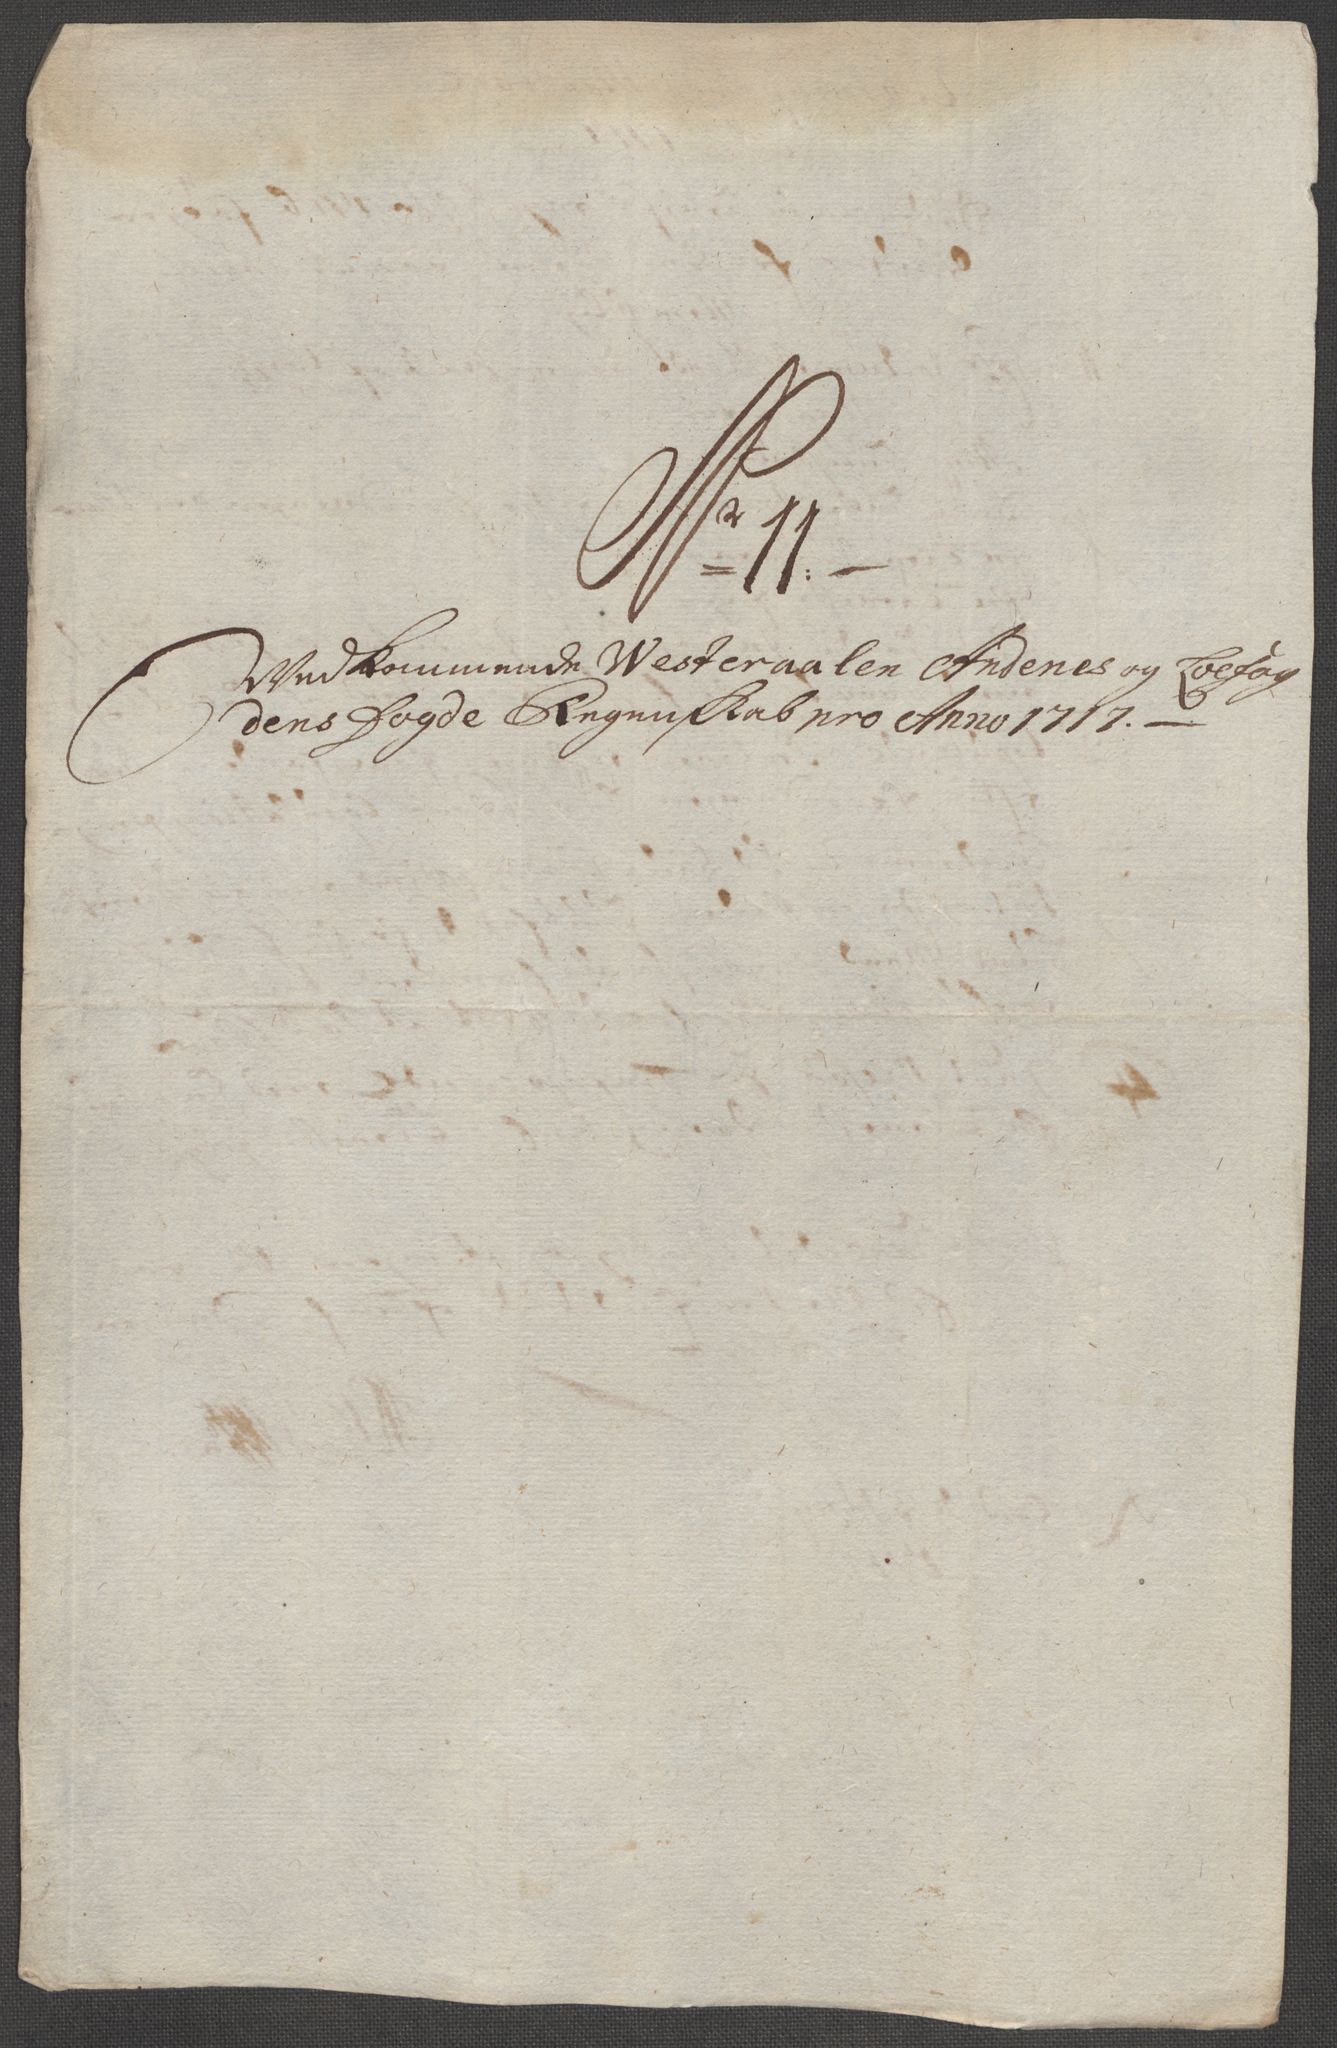 Nr 11.
Vedkommende Westeraalen Andenes og Loefog
dens Fogde Regnuskab pro Anno 1717.